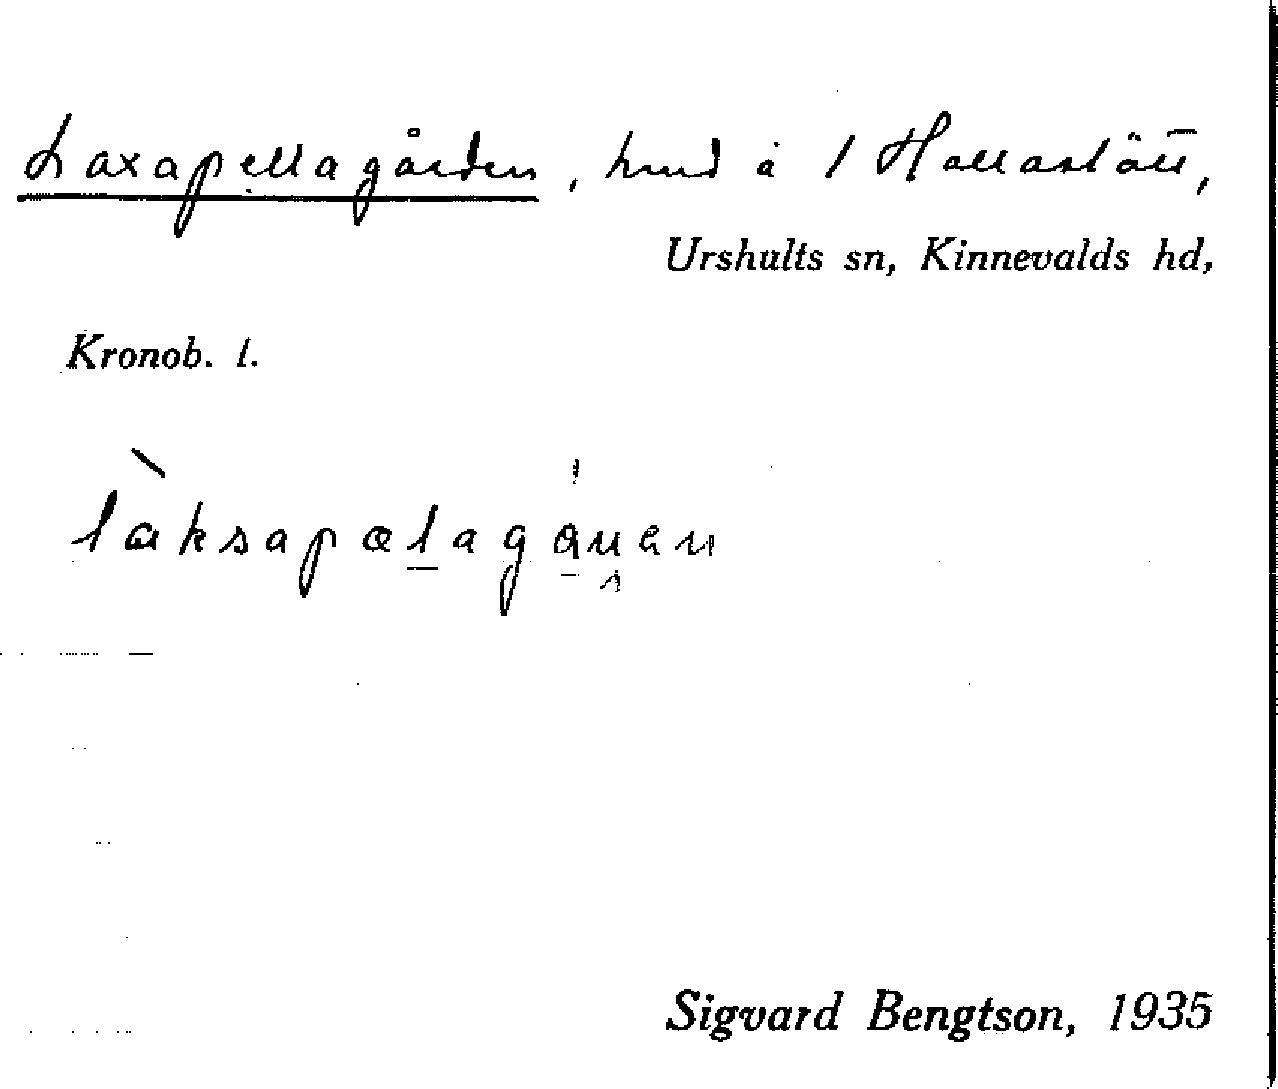 Laxapellagården, hmd å 1 Hallaslätt,
Urshults sn, Kinnevalds hd,
Kronob. l.
Sigvard Bengtson, 1935